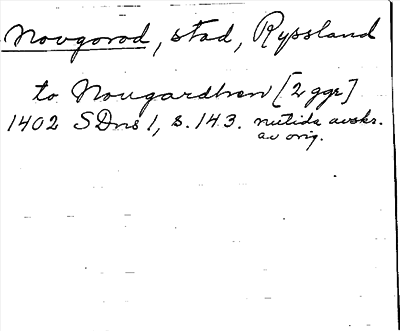 Novgorod, stad, Ryssland
to Nougardhen [2 ggr]
1402 SDns 1, s. 143. nutida avskr.
av orig.